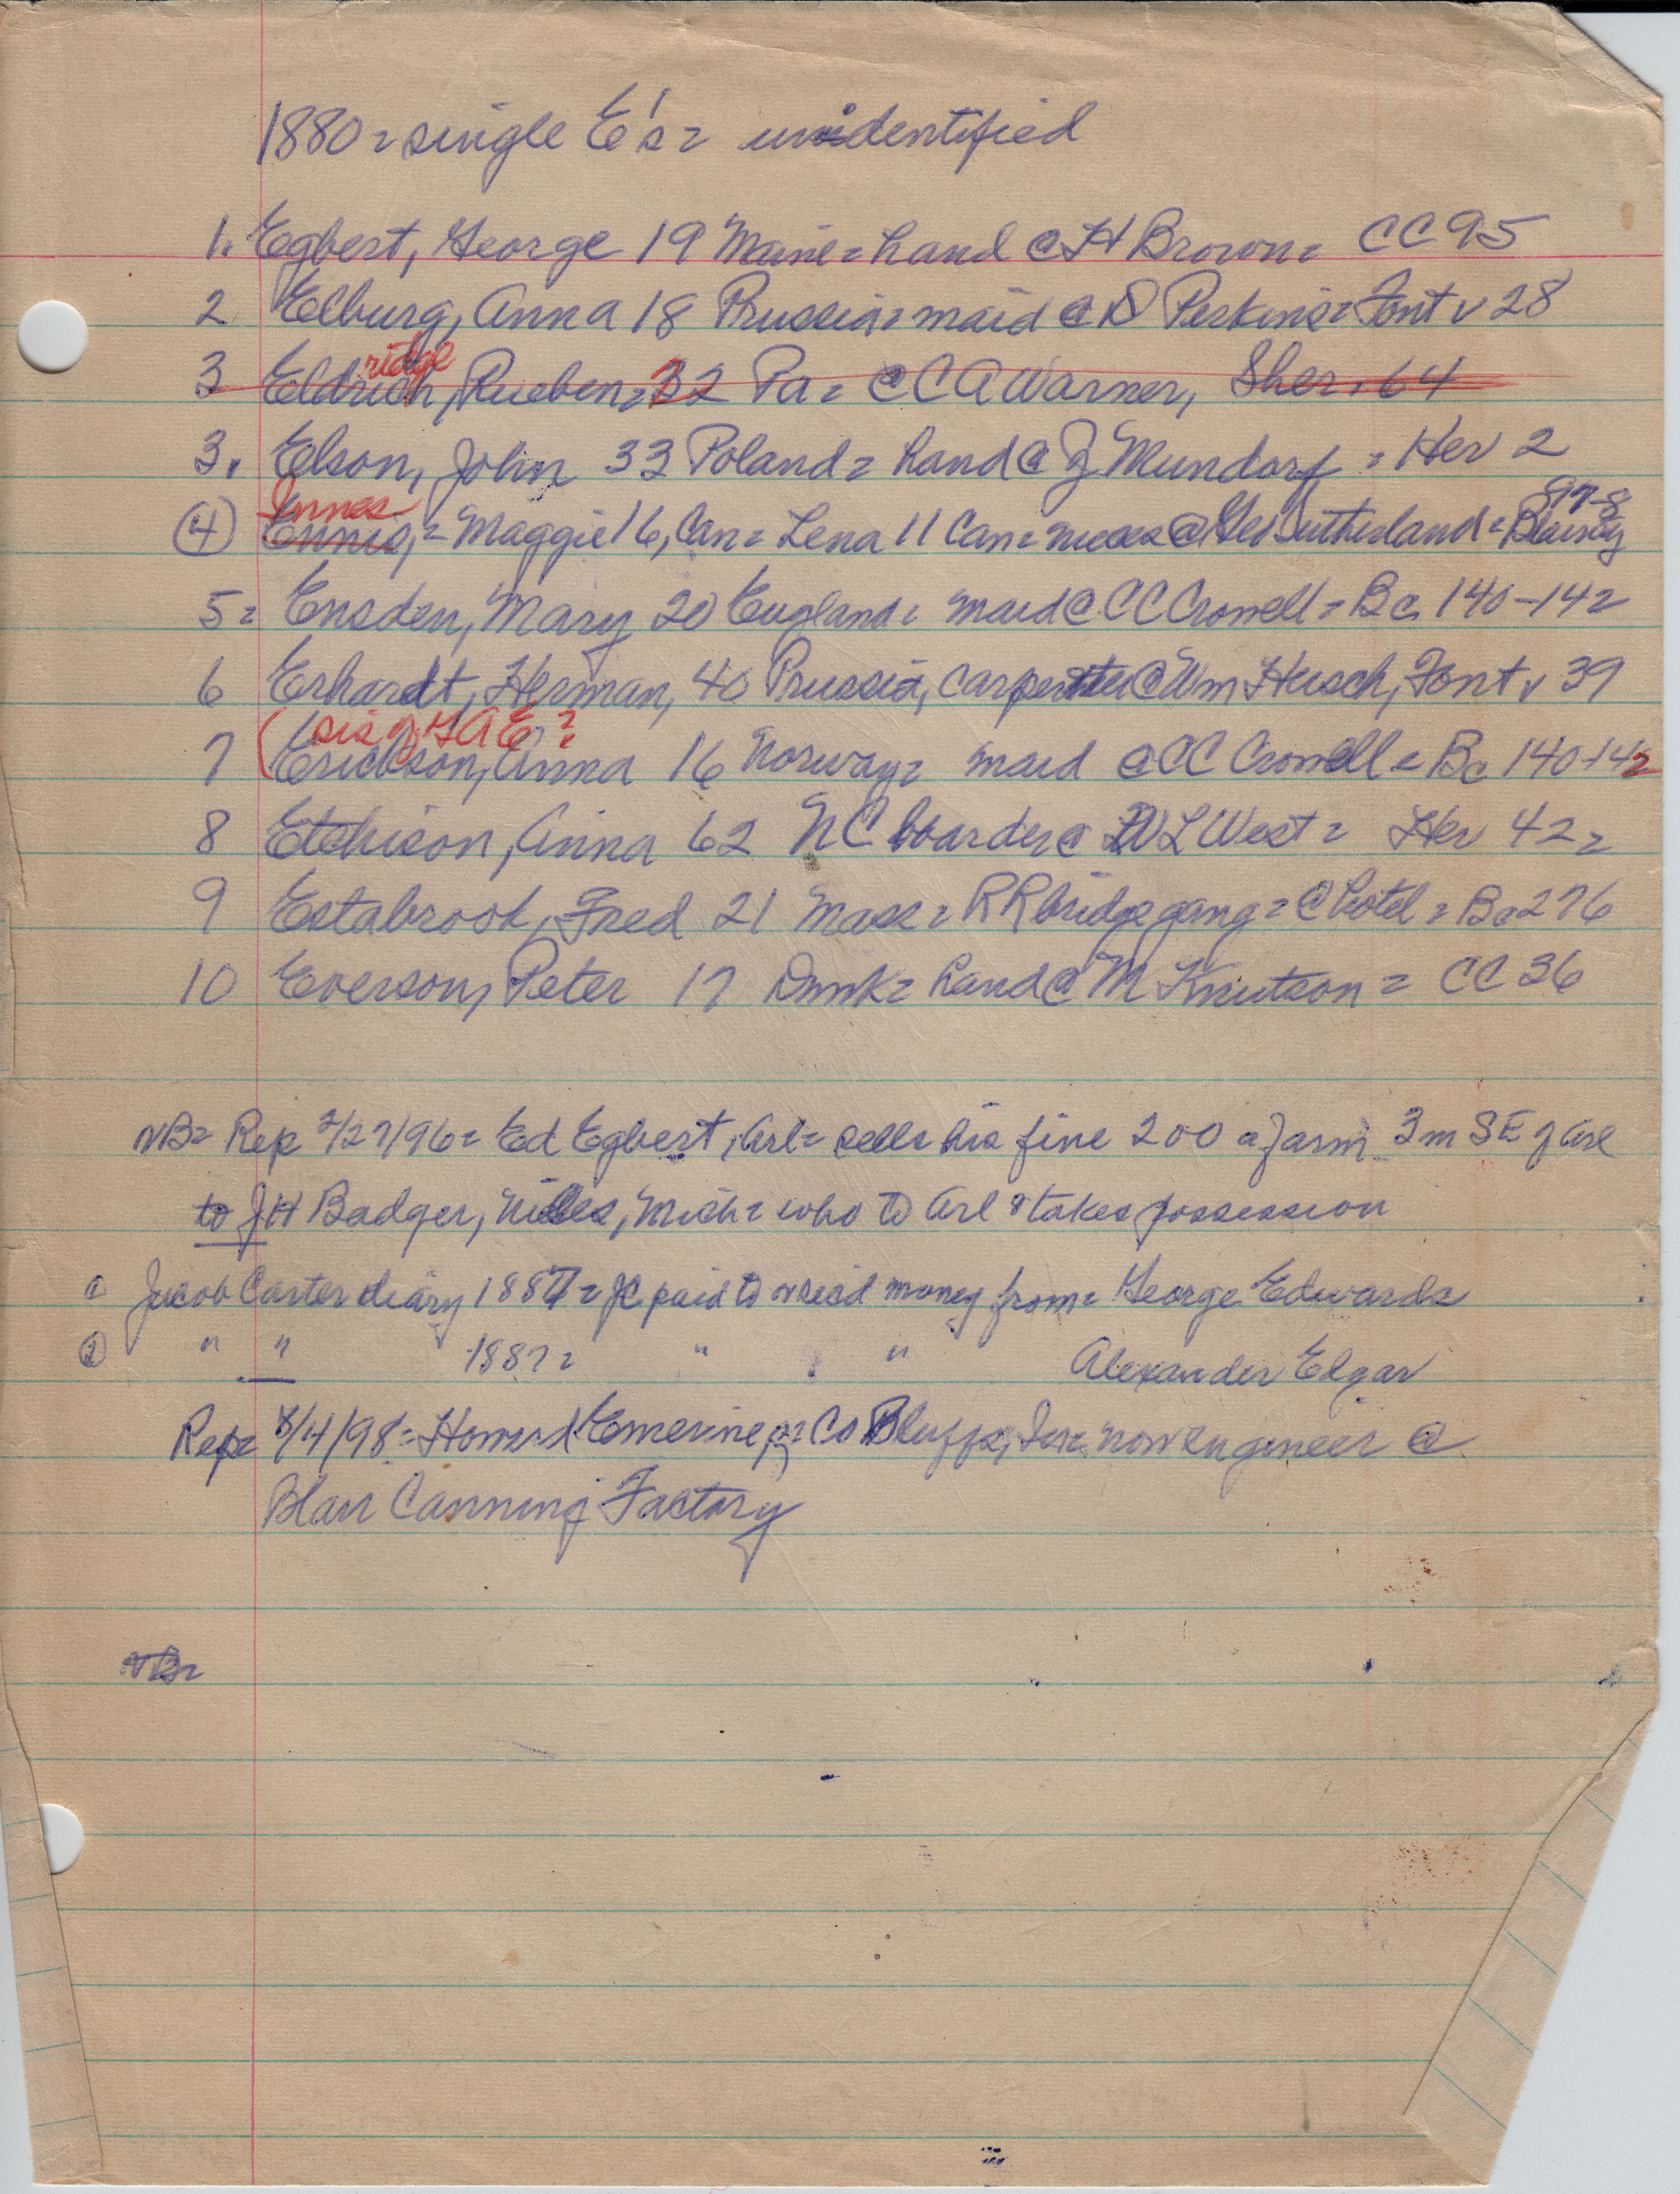 1880 = single E's = unidentified
1. Egbert, George 19 Maine = hand @ H Brown = CC 95
2 Elburg, Anna 18 Prussia = maid @ D Perkins = Font v 28
ridge
3 Eldrich, Rueben = 32 Pa = @ C A Warner, Sher. 64
3. Elson, John 33 Poland = hand @ J Mundorf = Her 2
Innes 97-8
(4) Ennis, = Maggie 16, Can = Lena 11 Can = nieces @ Geo Sutherland = Blair
5 = Ensden, Mary 20 England = maid @ CC Crowell = Bc 140-142
6 Erhardt, Herman, 40 Prussia, carpenter @ Wm Heisch, Font v 39
(sis of GAE?
7 Erickson, Anna 16 Norway = maid @ CC Crowell = Bc 140-142
8 Etchison, Anna 62 NC boarder @ W L West = Her 42 =
9 Estabrook, Fred 21 Mass = RR bridge gang = @ hotel = Bc 276
10 Everson, Peter 17 Dnmk = hand @ M Knutson = CC 36
NB = Rep 2/27/96 = Ed Egbert, Arl = sells his fine 200 a farm 3 m SE of Arl
to J H Badger, Niles, Mich = who to Arl & takes possession
(1) Jacob Carter diary 1887 = JC paid to or recd money from = George Edwards
(2) " " 1887 = " " Alexander Edgar
Rep = 8/4/98 = Howard Emerine, of Co Bluffs, Ia = now engineer @
Blair Canning Factory
NB =